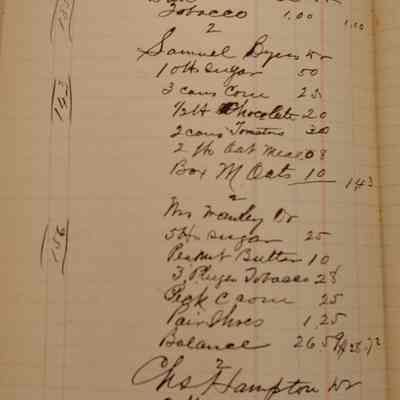 Tobacco 1.00 1.00
2
Samuel Byers Dr
10 lb sugar 50
3 cans Corn 25
1/2 lb Chocolate 20
2 cans Tomatoes 30
2 lb Oat Meal 08
Box M Oats 10 143
2
Mrs Manley Dr
5 lb sugar 25
Peanut Butter 10
3 Plugs Tobacco 28
Peck 25
Pair Shoes 1.25
Balance 26.59
2
Chs Hampton Dr
143
156